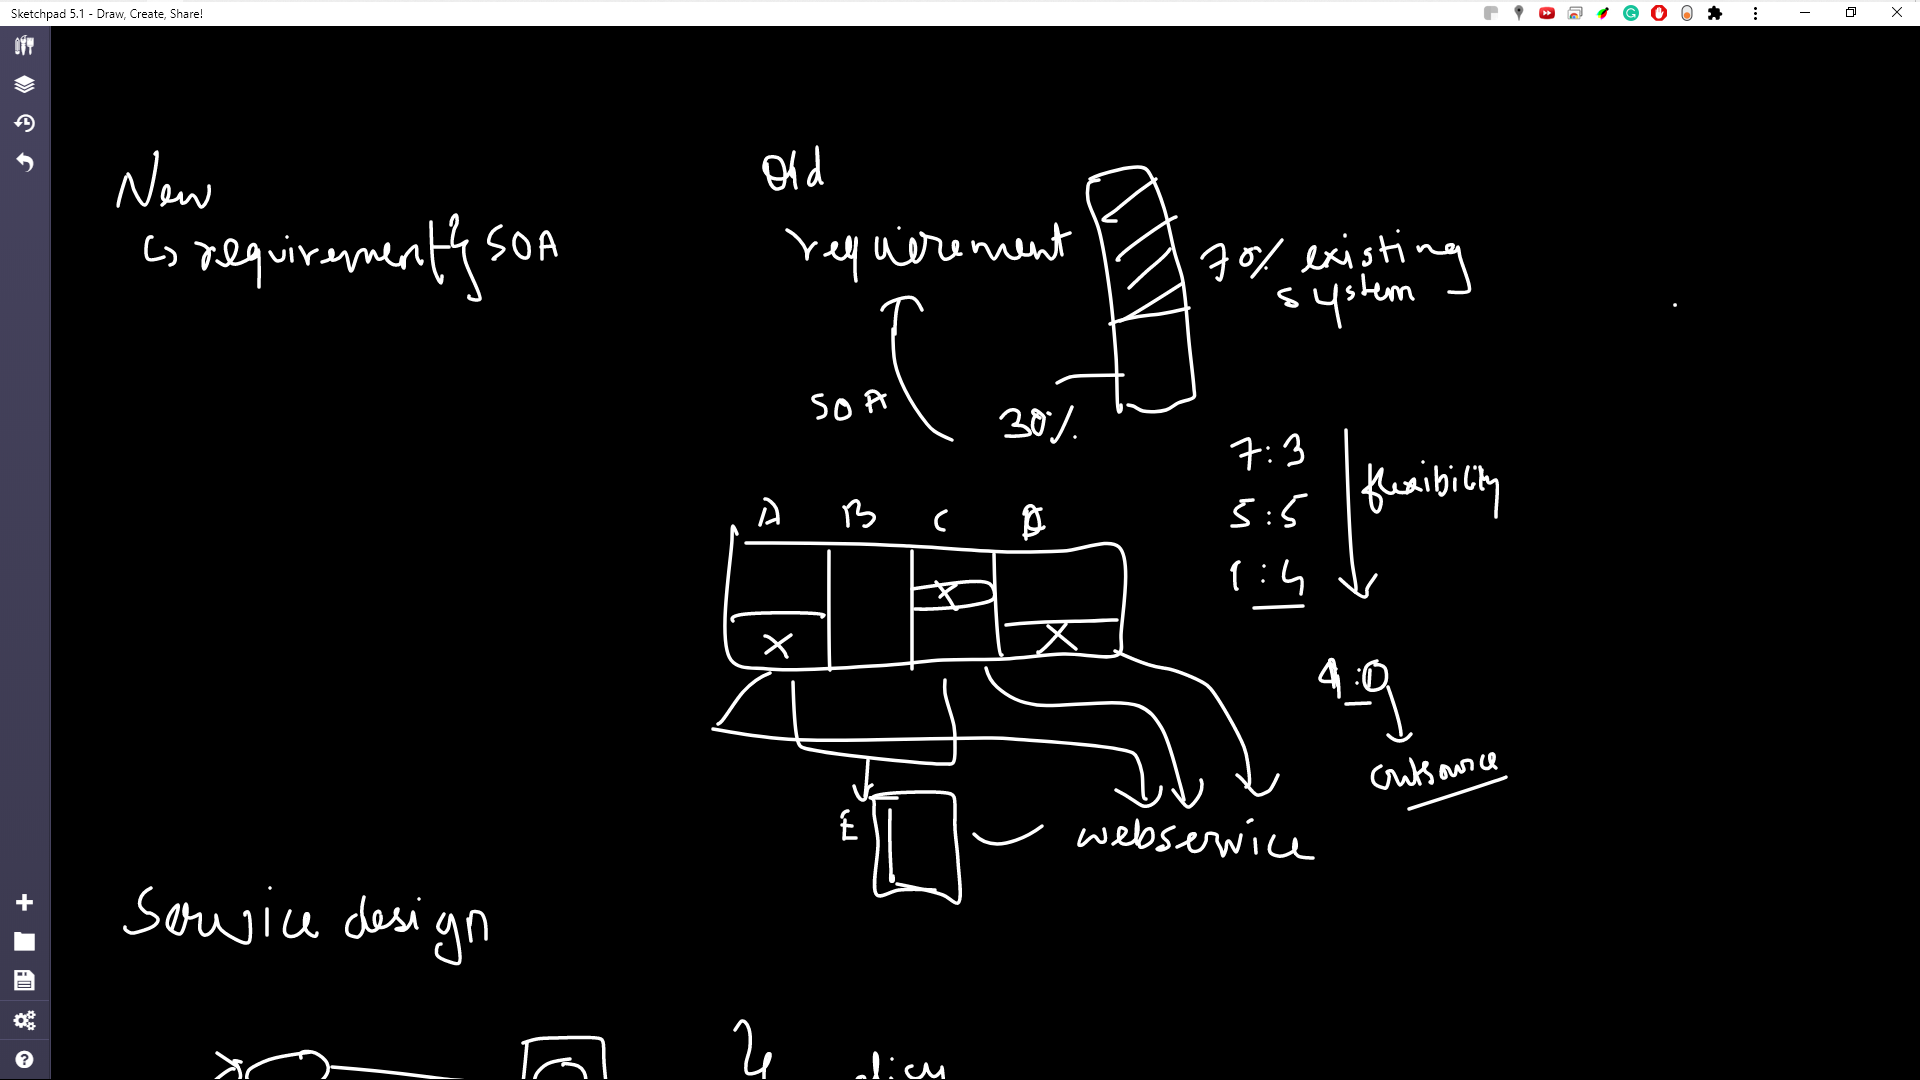 Sketchpad 5.1 - Draw, Create, Share!
New
requirement SOA
Old
requirement
70% existing
system
SOA
30%
7:3
5:5
1:4
flexibility
A B C D
:0
outsource
E
webservice
Service design